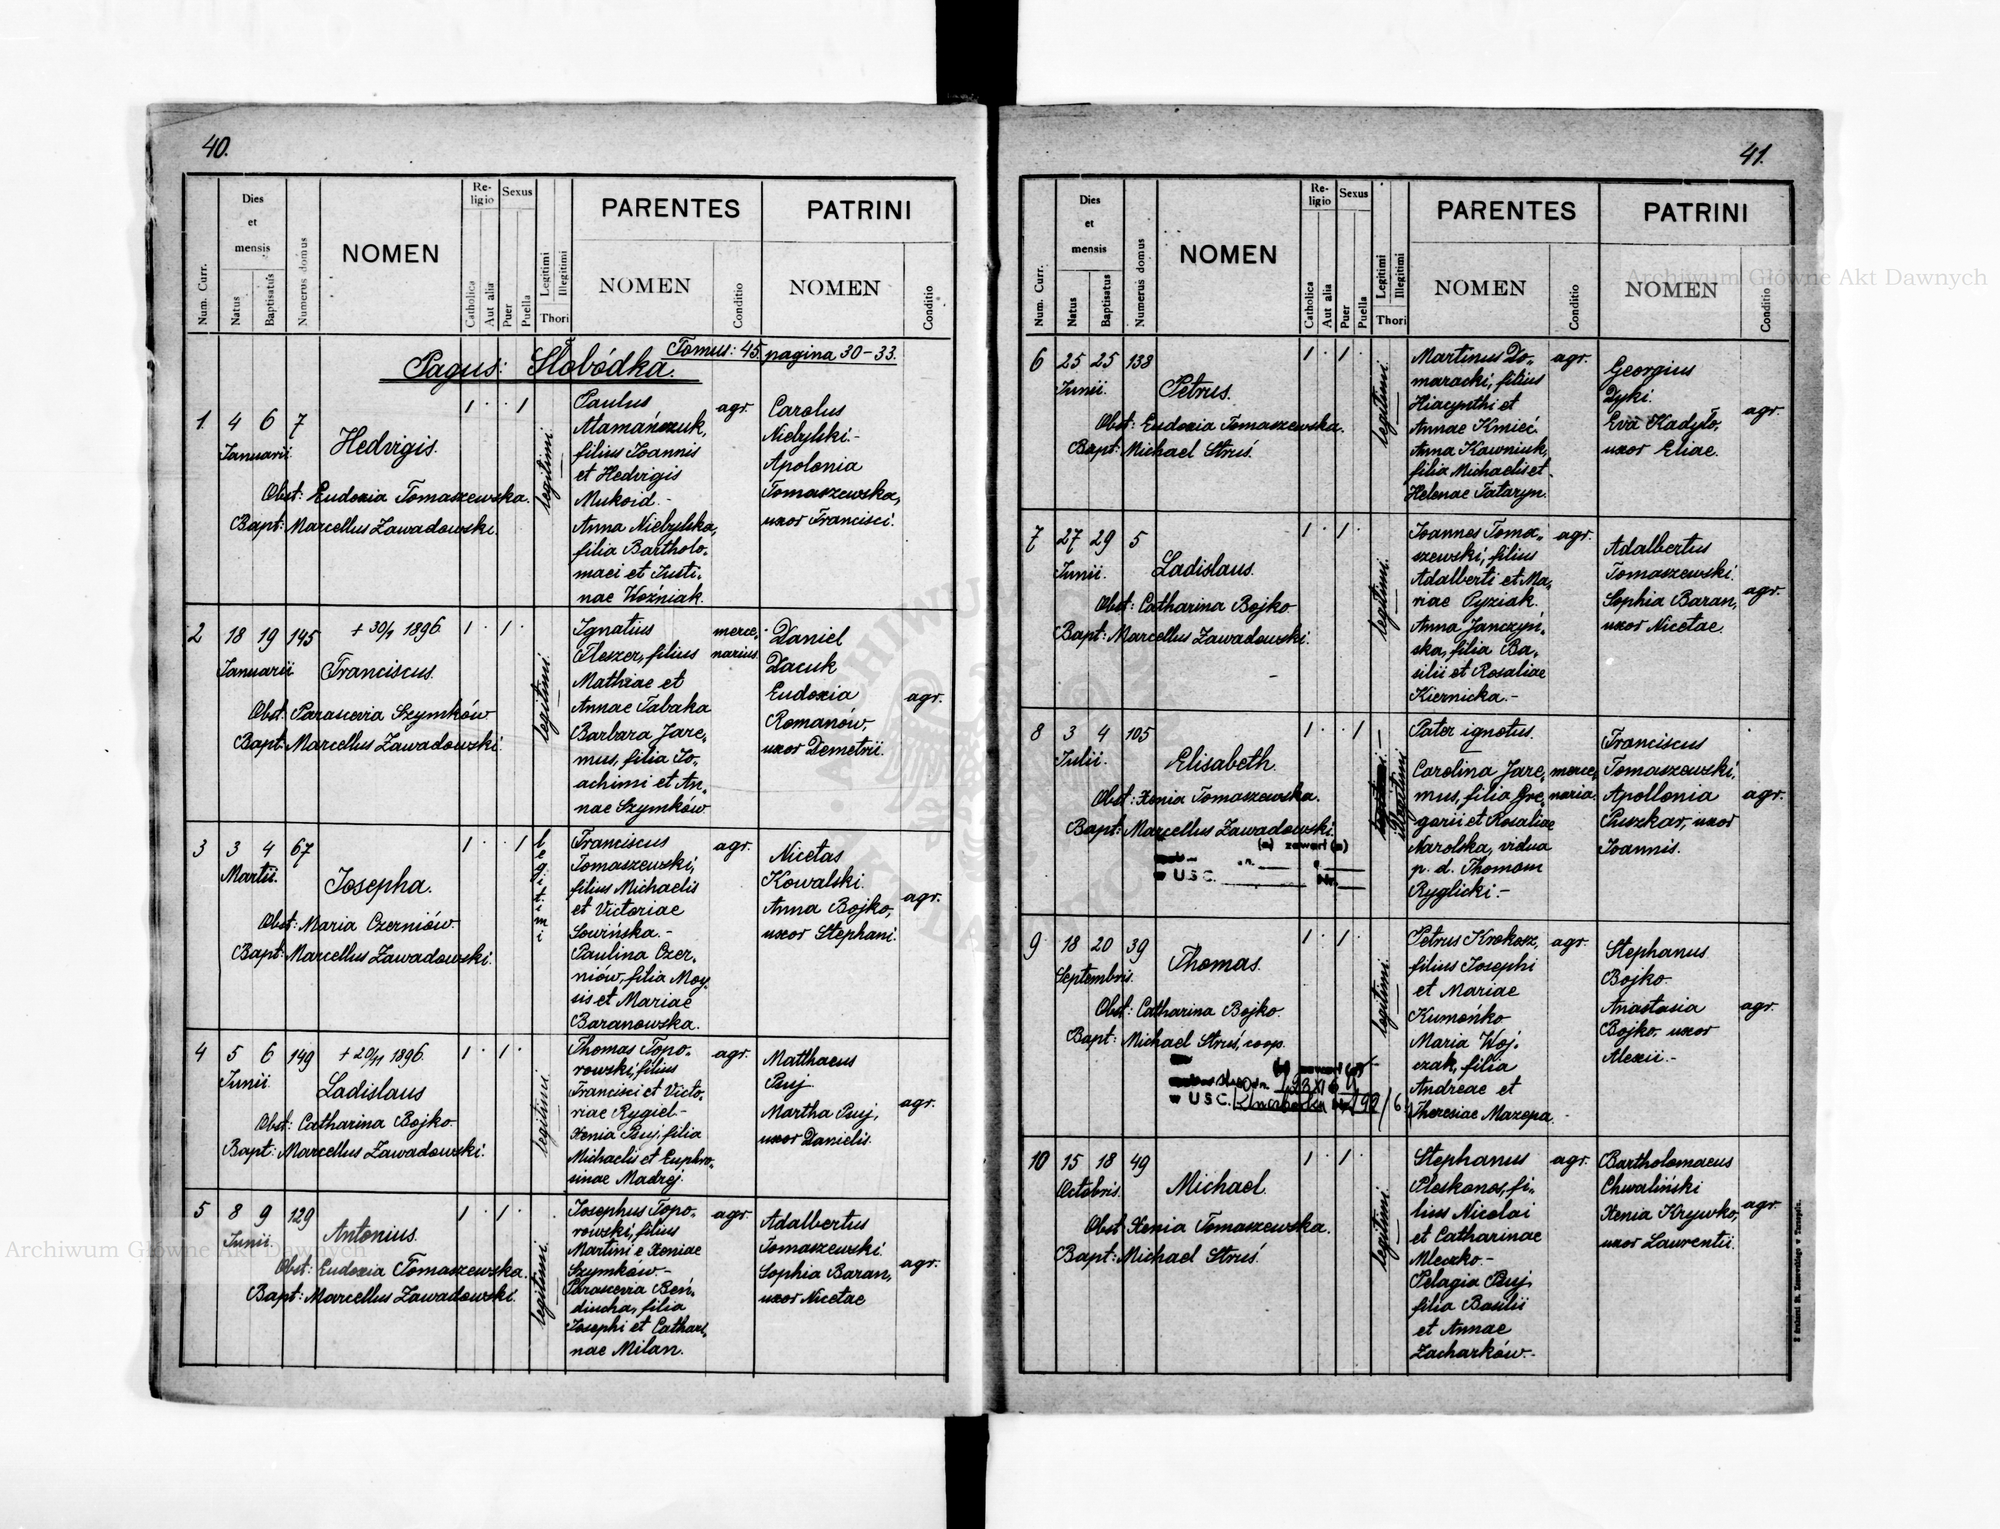 40.
Num. Curr.
Dies
et
mensis
Natus
Baptisatus
Numerus domus
NOMEN
Re-
ligio
Catholica
Aut alia
Sexus
Puer
Puella
Legitimi
Illegitimi
Thori
PARENTES
NOMEN
Conditio
PATRINI
NOMEN
Conditio
Tomus: 45. pagina 30-33.
Pagus: Słobódka.
1 4 6 7
Januarii
Hedvigis.
Obst: Eudoxia Tomaszewska.
Bapt: Marcellus Zawadowski.
1 . . 1
legitimi
Paulus
Atamańczuk,
filius Joannis
et Hedvigis
Mukoid.-
Anna Niebylska,
filia Bartholo-
maei et Justi-
nae Woźniak.
agr.
Carolus
Niebylski.-
Apolonia
Tomaszewska,
uxor Francisci.
2 18 19 145
Januarii
+ 30/1 1896.
Franciscus.
Obst: Parascevia Szymków
Bapt: Marcellus Zawadowski.
1 . 1 .
legitimi
Ignatius
Fleszer, filius
Mathiae et
Annae Tabaka
Barbara Jare-
mus, filia Jo-
achimi et An-
nae Szymków
merce-
narius.
Daniel
Dacuk
Eudoxia
Romanów,
uxor Demetrii.
agr.
3 3 4 67
Martii.
Josepha.
Obst: Maria Czerniów.
Bapt: Marcellus Zawadowski.
1 . . 1
legitimi
Franciscus
Tomaszewski,
filius Michaelis
et Victoriae
Sowińska.-
Paulina Czer-
niów, filia Moy-
sis et Mariae
Baranowska.
agr.
Nicetas
Kowalski.
Anna Bojko,
uxor Stephani.
agr.
4 5 6 149
Junii.
+ 20/11 1896.
Ladislaus
Obst: Catharina Bojko.
Bapt: Marcellus Zawadowski.
1 . 1 .
legitimi
Thomas Topo-
rowski, filius
Francisci et Victo-
riae Rygiel-
Xenia Puj, filia
Michaelis et Euphro-
sinae Madrej.
agr.
Matthaeus
Puj
Martha Puj,
uxor Danielis.
agr.
5 8 9 129
Junii.
Antonius.
Obst: Eudoxia Tomaszewska.
Bapt: Marcellus Zawadowski.
1 . 1 .
legitimi
Josephus Topo-
rowski, filius
Martini e Xeniae
Szymków.-
Parascevia Ben-
diucha, filia
Josephi et Cathari-
nae Milan.
agr.
Adalbertus
Tomaszewski.
Sophia Baran,
uxor Nicetae
agr.
41.
Num. Curr.
Dies
et
mensis
Natus
Baptisatus
Numerus domus
NOMEN
Re-
ligio
Catholica
Aut alia
Sexus
Puer
Puella
Legitimi
Illegitimi
Thori
PARENTES
NOMEN
Conditio
PATRINI
NOMEN
Conditio
6 25 25 138
Junii.
Petrus.
Obst: Eudoxia Tomaszewska.
Bapt: Michael Struś.
1 . 1 .
legitimi.
Martinus Do-
maracki, filius
Hiacynthi et
Annae Kmieć.
Anna Kawniuk,
filia Michaelis et
Helenae Tataryn.
agr.
Georgius
Dyki.
Eva Kadyło,
uxor Eliae.
agr.
7 27 29 5
Junii.
Ladislaus.
Obst: Catharina Bojko
Bapt: Marcellus Zawadowski.
1 . 1 .
legitimi.
Joannes Toma-
szewski, filius
Adalberti et Ma-
riae Pyziak.
Anna Janczyń-
ska, filia Ba-
silii et Rosaliae
Kiernicka.-
agr.
Adalbertus
Tomaszewski.
Sophia Baran,
uxor Nicetae.
agr.
8 3 4 105
Julii.
Elisabeth.
Obst: Xenia Tomaszewska.
Bapt: Marcellus Zawadowski.
(a) zawarł (a)
w U.S.C. Nr.
1 . . 1
Illegitimi
Pater ignotus.
Carolina Jare-
mus, filia Gre-
gorii et Rosaliae
Narolska, vidua
p. d. Thomam
Ryglicki.-
merce-
naria.
Franciscus
Tomaszewski.
Apollonia
Puszkar, uxor
Joannis.
agr.
9 18 20 39
Septembris.
Thomas.
Obst: Catharina Bojko.
Bapt: Michael Struś, coop.
w U.S.C.
1 . 1 .
legitimi
Petrus Krokosz,
filius Josephi
et Mariae
Kumońko
Maria Woj-
czak, filia
Andreae et
Theresiae Mazepa.
agr.
Stephanus
Bojko.
Anastasia
Bojko, uxor
Alexii.-
agr.
10 15 18 49
Octobris.
Michael.
Obst: Xenia Tomaszewska.
Bapt: Michael Struś
1 . 1 .
legitimi
Stephanus
Pleskonos, fi-
lius Nicolai
et Catharinae
Mleczko-
Pelagia Puj,
filia Basilii
et Annae
Zacharków.-
agr.
Bartholomaeus
Chwaliński
Xenia Krywko,
uxor Laurentii.
agr.
Archiwum Główne Akt Dawnych
Archiwum Główne Akt Dawnych